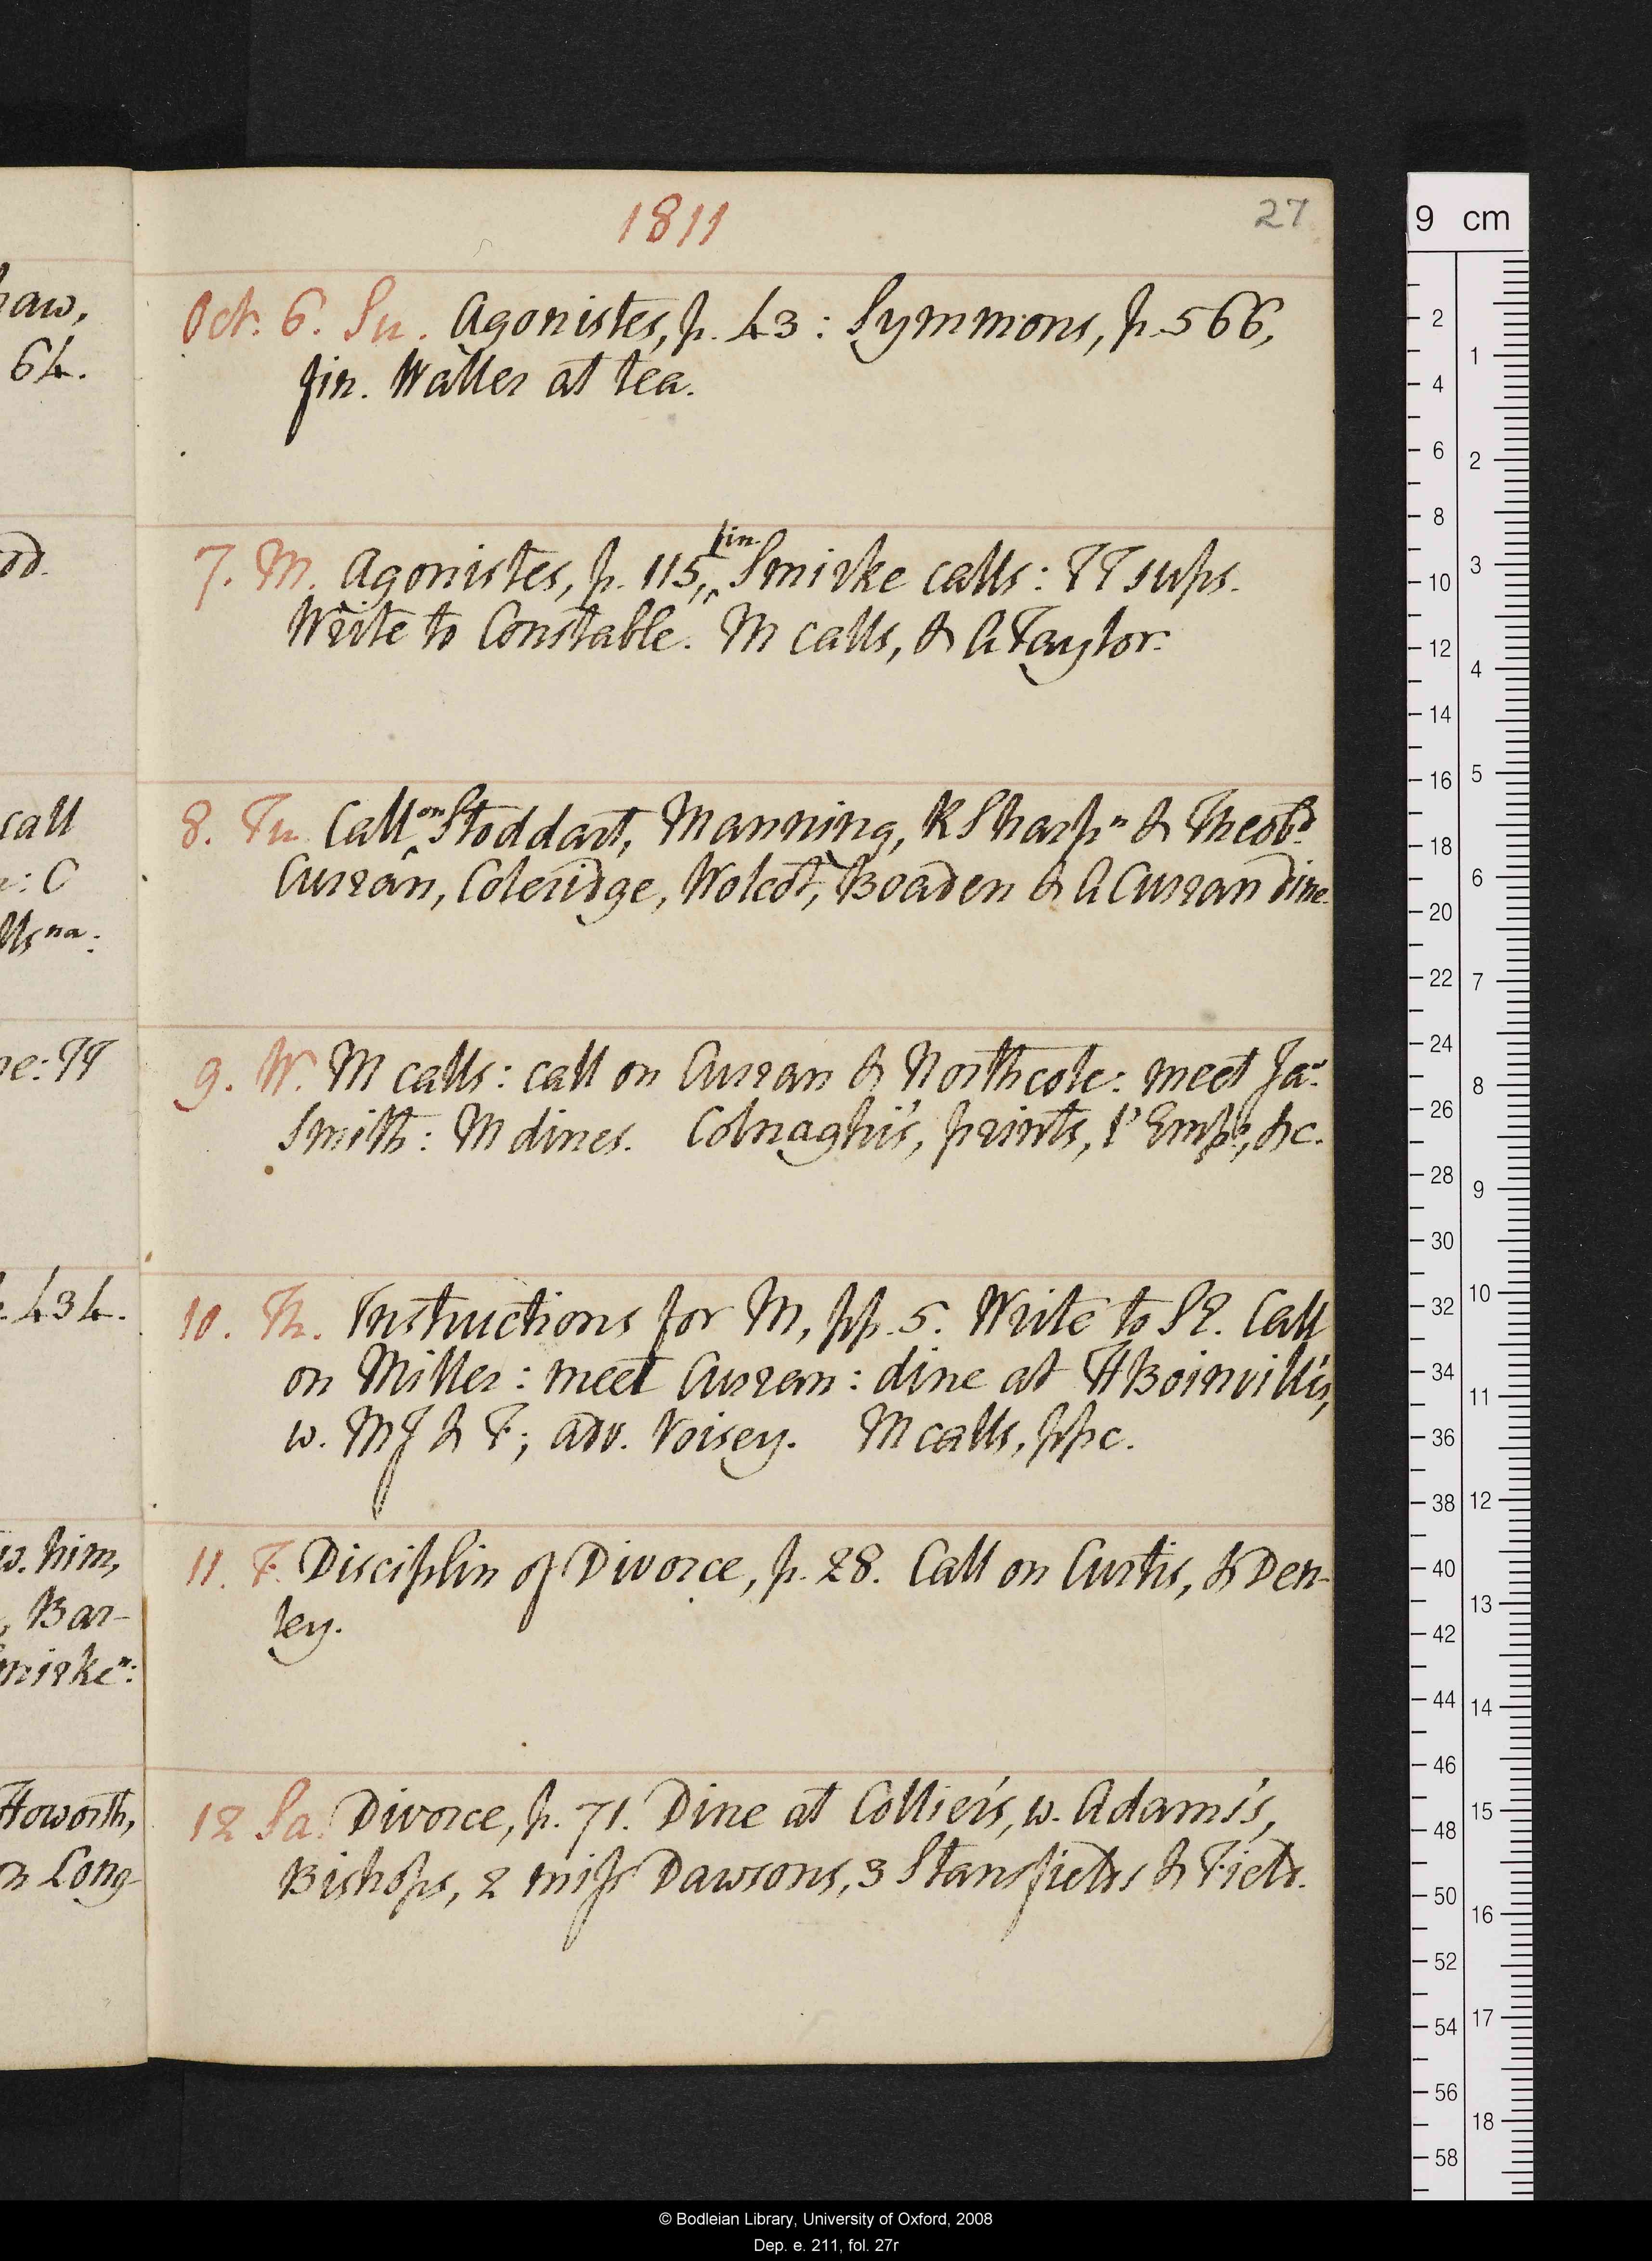 1811
27
Oct. 6. Su. Agonistes, p. 43: Symmons, p. 566,
fin. Waller at tea.
7. M. Agonistes, p. 115, fin. Smirke calls: TT sups.
Write to Constable. M calls, & A Taylor.
8. Tu. Call on Stoddart, Manning, R Sharp n & Theobd.
Curran, Coleridge, Wolcot, Boaden & A Curran dine.
9. W. M calls: call on Curran & Northcote: meet Jas
Smith: M dines. Colnaghi's, prints, l'Empr, &c.
10. Th. Instructions for M, pp. 5. Write to SE. Call
on Miller: meet Curran: dine at H Boinvill's,
w. MJ & F; adv. Voisey. M calls, ppc.
11. F. Disciplin of Divorce, p. 28. Call on Curtis, & Den-
ley.
12 Sa. Divorce, p. 71. Dine at Collier's, w. Adams's,
Bishops, 2 miss Dawsons, 3 Stansfields & Field.
haw,
64.
od.
call
: C
lls na:
ne: TT
p. 434.
w. him,
, Bar-
mirke n:
Howorth,
n Long-
9 cm
2
4
6
8
10
12
14
16
18
20
22
24
26
28
30
32
34
36
38
40
42
44
46
48
50
52
54
56
58
1
2
3
4
5
6
7
8
9
10
11
12
13
14
15
16
17
18
© Bodleian Library, University of Oxford, 2008
Dep. e. 211, fol. 27r